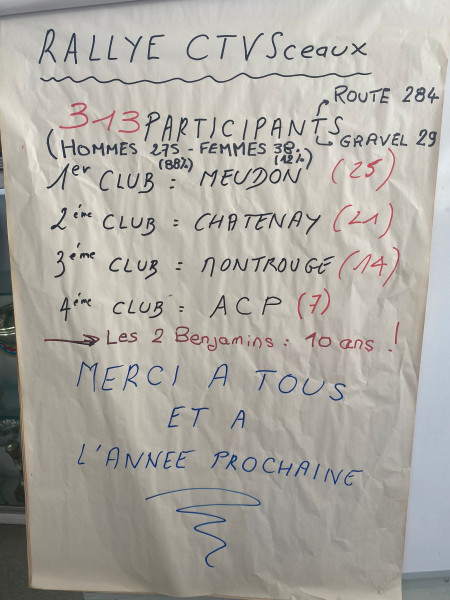 RALLYE CTVSceaux
313 PARTICIPANTS
ROUTE 284
GRAVEL 29
(HOMMES 275 - FEMMES 38.
(88%) (12%))
1er CLUB = MEUDON (25)
2ème CLUB = CHATENAY (21)
3ème CLUB = MONTROUGE (14)
4ème CLUB = ACP (7)
→ Les 2 Benjamins : 10 ans !
MERCI A TOUS
ET A
L'ANNEE PROCHAINE